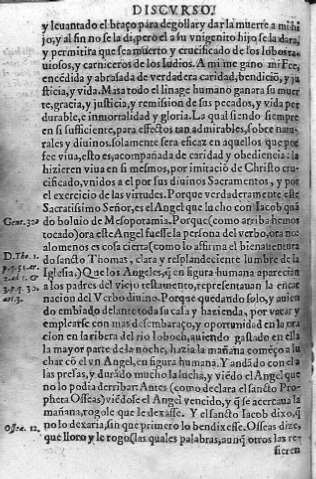 DISCVRSO.
y leuantado el braço para degollar y dar la muerte a mi hi
jo, y al fin no se la di, pero el a su vnigenito hijo se la dara,
y permitira que sea muerto y crucificado de los lobos ra
uiosos, y carniceros de los Iudios. A mi me gano mi Fee,
encẽdida y abrasada de verdadera caridad, bendiciõ, y ju
sticia, y vida. Mas a todo el linage humano ganara su muer
te, gracia, y justicia, y remision de sus pecados, y vida per
durable, e inmortalidad y gloria. La qual siendo siempre
en si sufficiente, para effectos tan admirables, sobre natu-
rales y diuinos, solamente sera eficaz en aquellos que por
fee viua, esto es, acompañada de caridad y obediencia: la
hizieren viua en si mesmos, por imitació de Christo cru-
cificado, vnidos a el por sus diuinos Sacramentos, y por
el exercicio de las virtudes. Porque verdaderamente este
Sacratissimo Señor, es el Angel que lucho con Iacob quã
Gene. 32.
do boluio de Mesopotamia. Porque (como arriba hemos
tocado) ora este Angel fuesse la persona del verbo, ora no:
alomenos es cosa cierta (como lo affirma el bienauentura
D. Tho. 1.
do sancto Thomas, clara y resplandeciente lumbre de la
Iglesia,) Que los Angeles, q̃ en figura humana aparecian
a los padres del viejo testamento, representauan la encar
nacion del Verbo diuino. Porque quedando solo, y auien
do embiado delante toda su casa y hazienda, por vacar y
emplearse con mas desembaraço, y oportunidad en la ora
cion en la ribera del rio Ioboch, auiendo gastado en ella
la mayor parte de la noche, hazia la mañana començo a lu
char cõ el vn Angel, en figura humana. Y andãdo con el a
las presas, y durãdo mucho la lucha, y viẽdo el Angel que
no lo podia derribar: Antes (como declara el sancto Pro-
pheta Osseas) viẽdose el Angel vencido, y q̃ se acercaua la
mañana, rogole que le dexasse. Y el sancto Iacob dixo, q̃
no lo dexaria, sin que primero lo bendixesse. Osseas dize,
Osse. 12.
que lloro y le rogo (las quales palabras, aunq̃ otros las re-
fieren